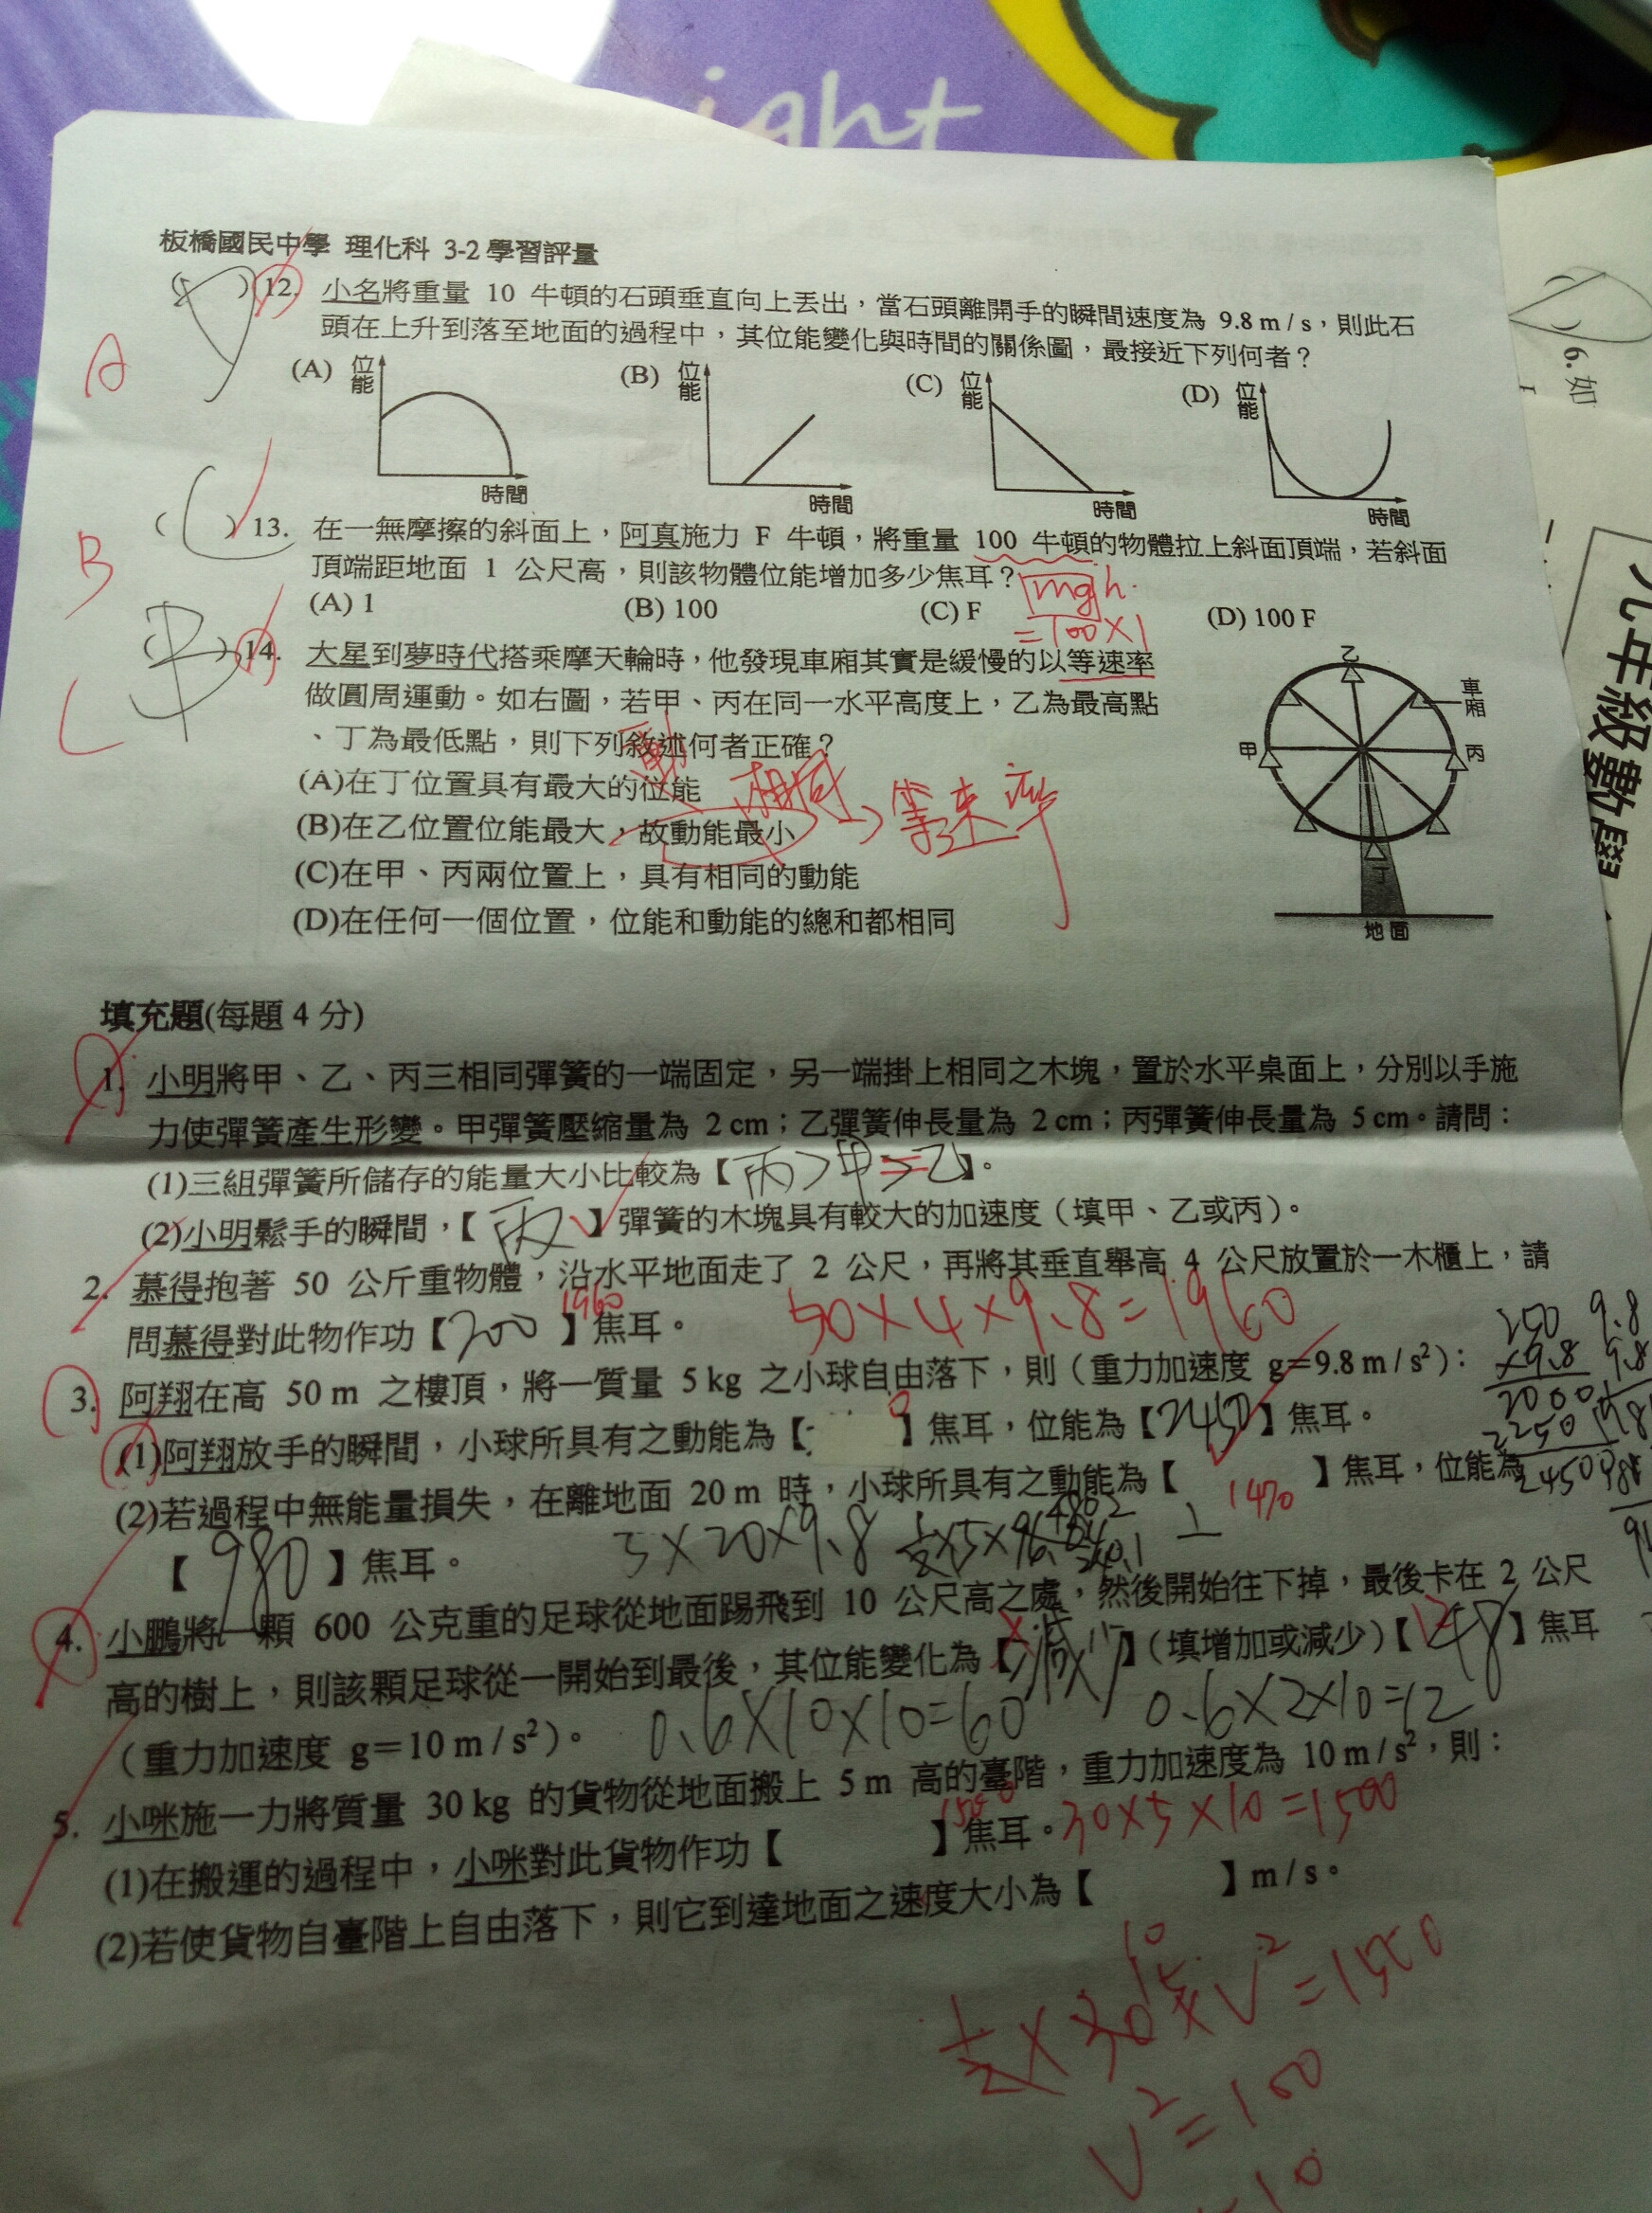 ight
板橋國民中學 理化科 3-2學習評量
( )12. 小名將重量 10 牛頓的石頭垂直向上丟出，當石頭離開手的瞬間速度為 9.8 m / s，則此石
頭在上升到落至地面的過程中，其位能變化與時間的關係圖，最接近下列何者？
A
(A) 位能 時間
(B) 位能 時間
(C) 位能 時間
(D) 位能 時間
( )13. 在一無摩擦的斜面上，阿真施力 F 牛頓，將重量 100 牛頓的物體拉上斜面頂端，若斜面
頂端距地面 1 公尺高，則該物體位能增加多少焦耳？ mgh.
B
(A) 1 (B) 100 (C) F (D) 100 F
=100×1
( )14. 大星到夢時代搭乘摩天輪時，他發現車廂其實是緩慢的以等速率
做圓周運動。如右圖，若甲、丙在同一水平高度上，乙為最高點
、丁為最低點，則下列敘述何者正確？
(A)在丁位置具有最大的位能
動 相同、等速率
(B)在乙位置位能最大，故動能最小
(C)在甲、丙兩位置上，具有相同的動能
(D)在任何一個位置，位能和動能的總和都相同
乙
車廂
甲
丙
丁
地面
填充題(每題 4 分)
1. 小明將甲、乙、丙三相同彈簧的一端固定，另一端掛上相同之木塊，置於水平桌面上，分別以手施
力使彈簧產生形變。甲彈簧壓縮量為 2 cm；乙彈簧伸長量為 2 cm；丙彈簧伸長量為 5 cm。請問：
(1)三組彈簧所儲存的能量大小比較為【丙>甲=乙】。
(2)小明鬆手的瞬間，【丙】彈簧的木塊具有較大的加速度（填甲、乙或丙）。
2. 慕得抱著 50 公斤重物體，沿水平地面走了 2 公尺，再將其垂直舉高 4 公尺放置於一木櫃上，請
1960
50×4×9.8=1960
問慕得對此物作功【200】焦耳。
3. 阿翔在高 50 m 之樓頂，將一質量 5 kg 之小球自由落下，則（重力加速度 g=9.8 m / s²）：
250
×9.8
2000
2250
2450
9.8
9.8
(1)阿翔放手的瞬間，小球所具有之動能為【0】焦耳，位能為【2450】焦耳。
(2)若過程中無能量損失，在離地面 20 m 時，小球所具有之動能為【1470】焦耳，位能為
【980】焦耳。
5×20×9.8
4. 小鵬將一顆 600 公克重的足球從地面踢飛到 10 公尺高之處，然後開始往下掉，最後卡在 2 公尺
高的樹上，則該顆足球從一開始到最後，其位能變化為【減少】（填增加或減少）【48】焦耳
12
（重力加速度 g=10 m / s²）。
0.6×10×10=60 0.6×2×10=12
5. 小咪施一力將質量 30 kg 的貨物從地面搬上 5 m 高的臺階，重力加速度為 10 m / s²，則：
(1)在搬運的過程中，小咪對此貨物作功【1500】焦耳。 30×5×10=1500
(2)若使貨物自臺階上自由落下，則它到達地面之速度大小為【 】m / s。
10
½×30×V²=1500
V²=100
10
( )6. 如
九年級數學